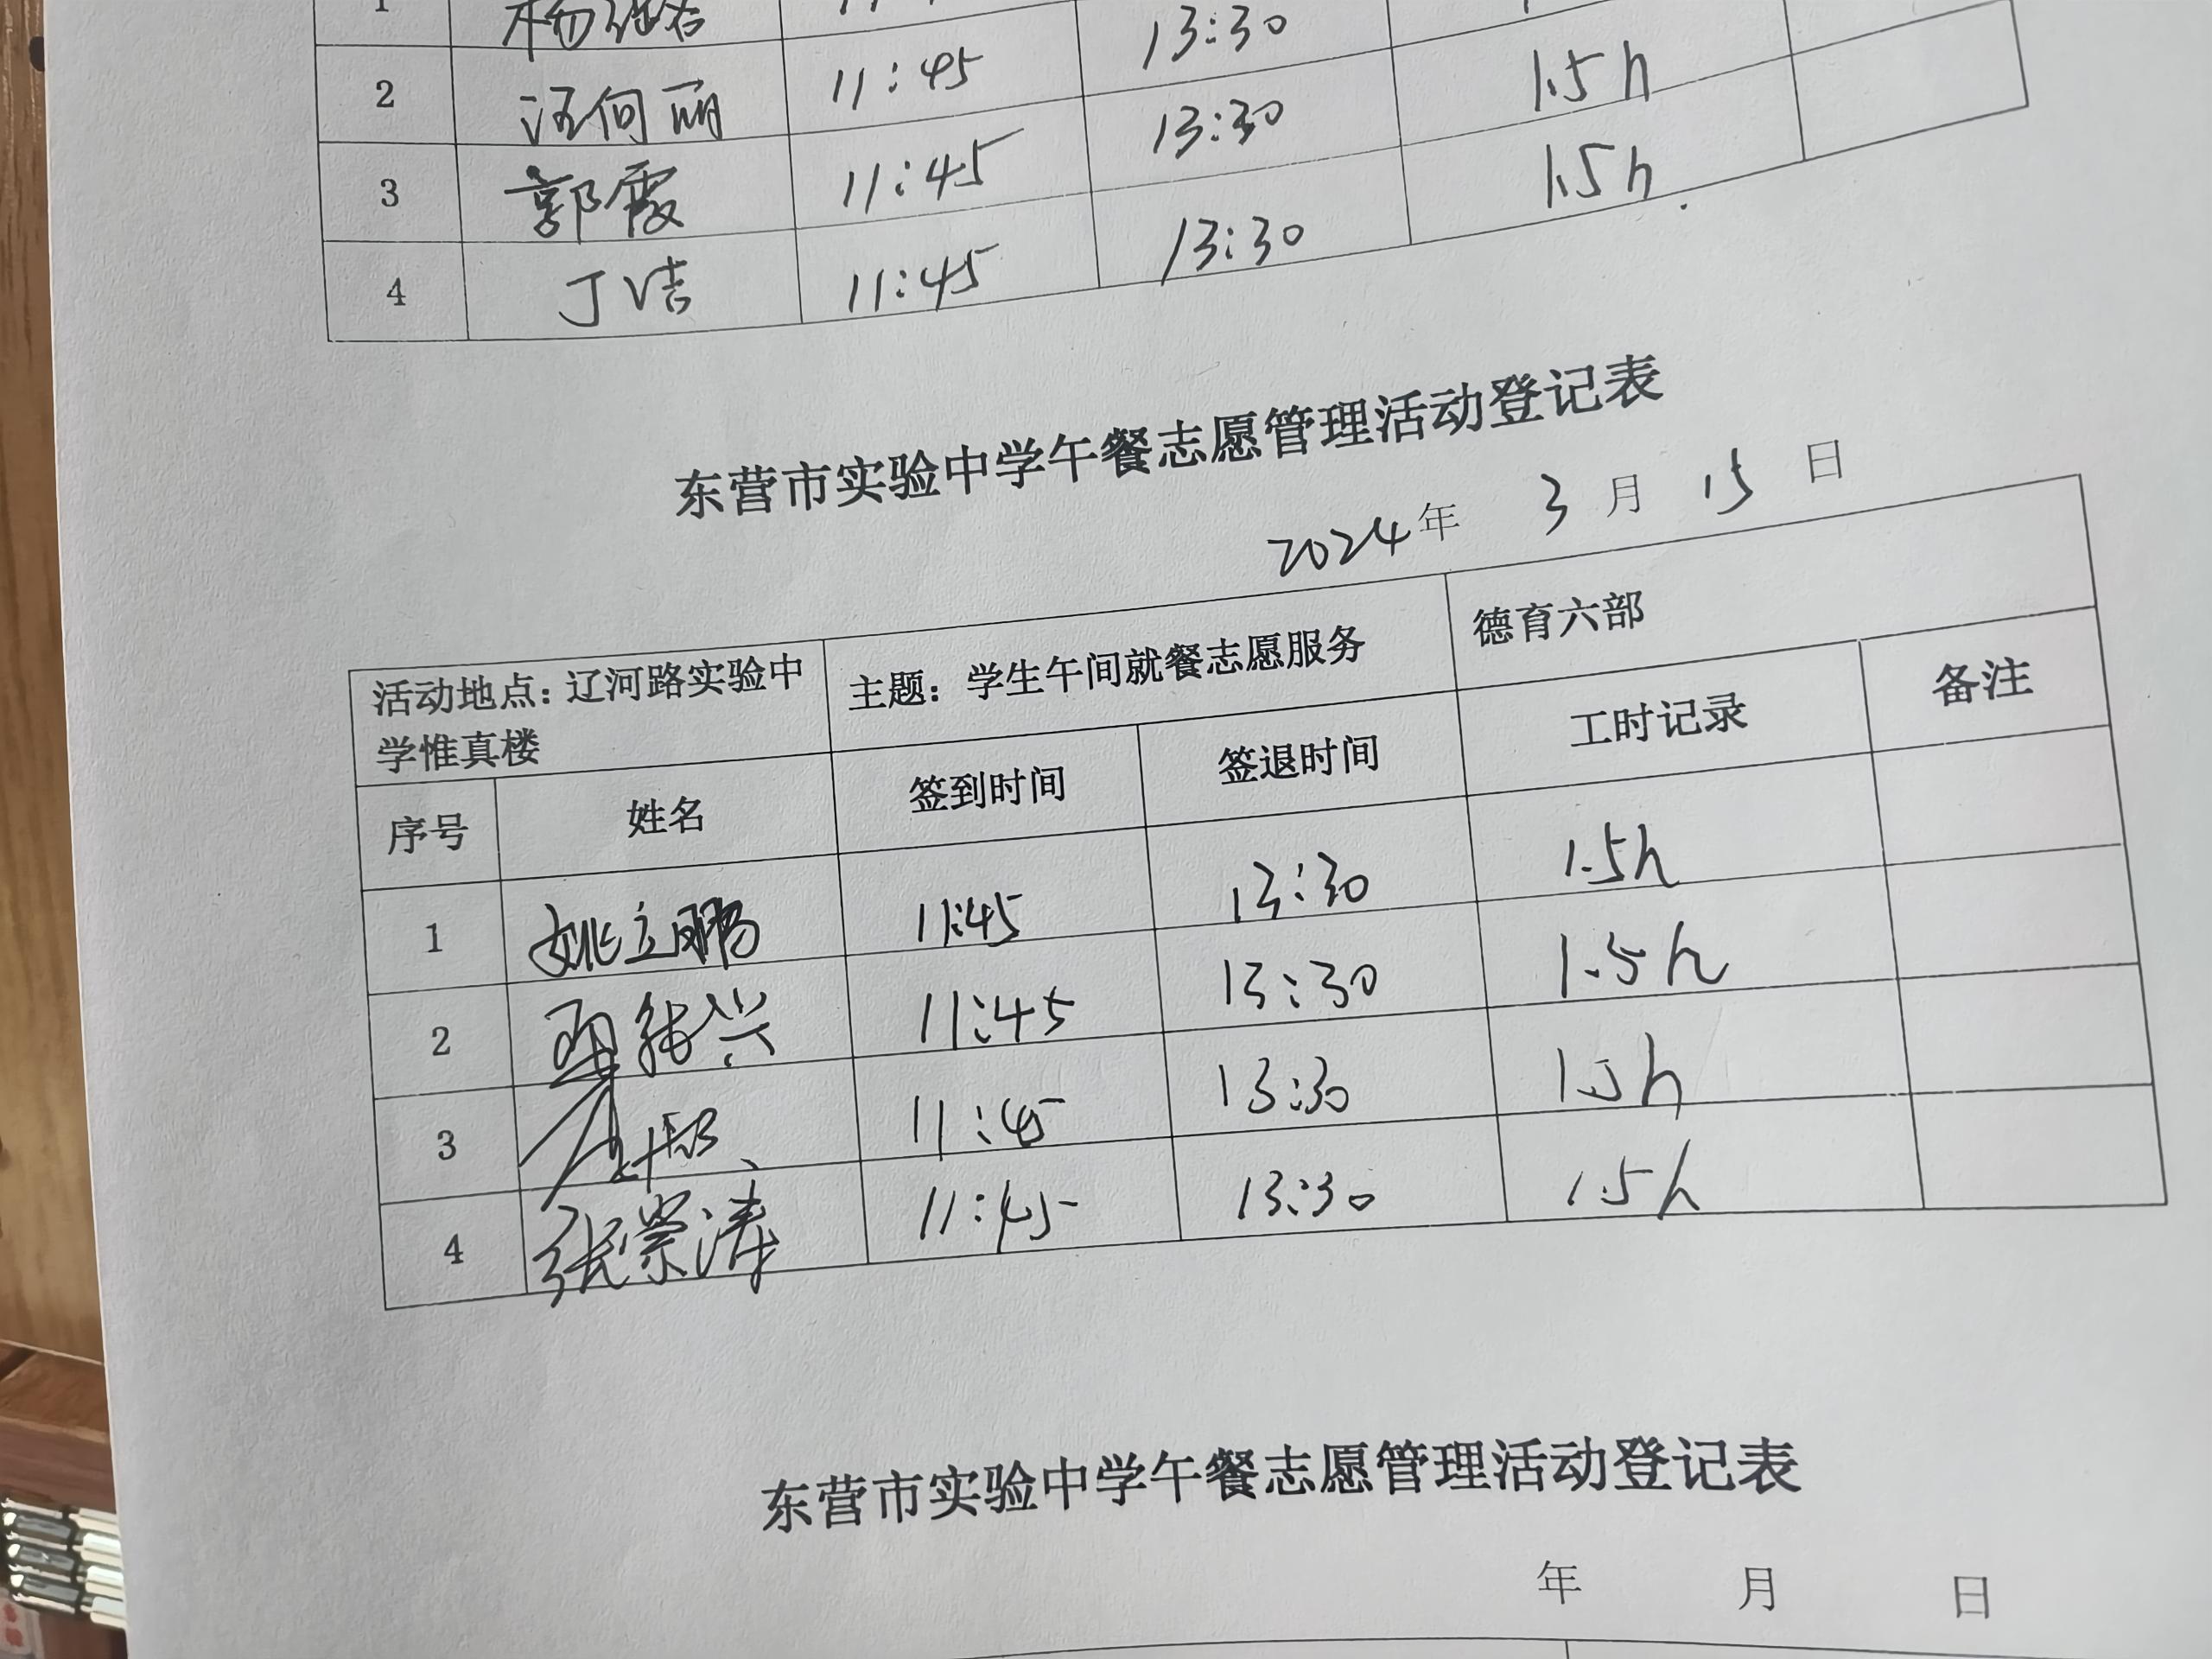 1 杨 13:30
2 汪何丽 11:45 13:30 1.5h
3 郭霞 11:45 13:30 1.5h
4 丁洁 11:45
东营市实验中学午餐志愿管理活动登记表
2024年 3 月 15 日
活动地点：辽河路实验中学惟真楼 主题：学生午间就餐志愿服务 德育六部
序号 姓名 签到时间 签退时间 工时记录 备注
1 姚立鹏 11:45 13:30 1.5h
2 兴 11:45 13:30 1.5h
3 11:45 13:30 1.5h
4 张崇涛 11:45 13:30 1.5h
东营市实验中学午餐志愿管理活动登记表
年 月 日